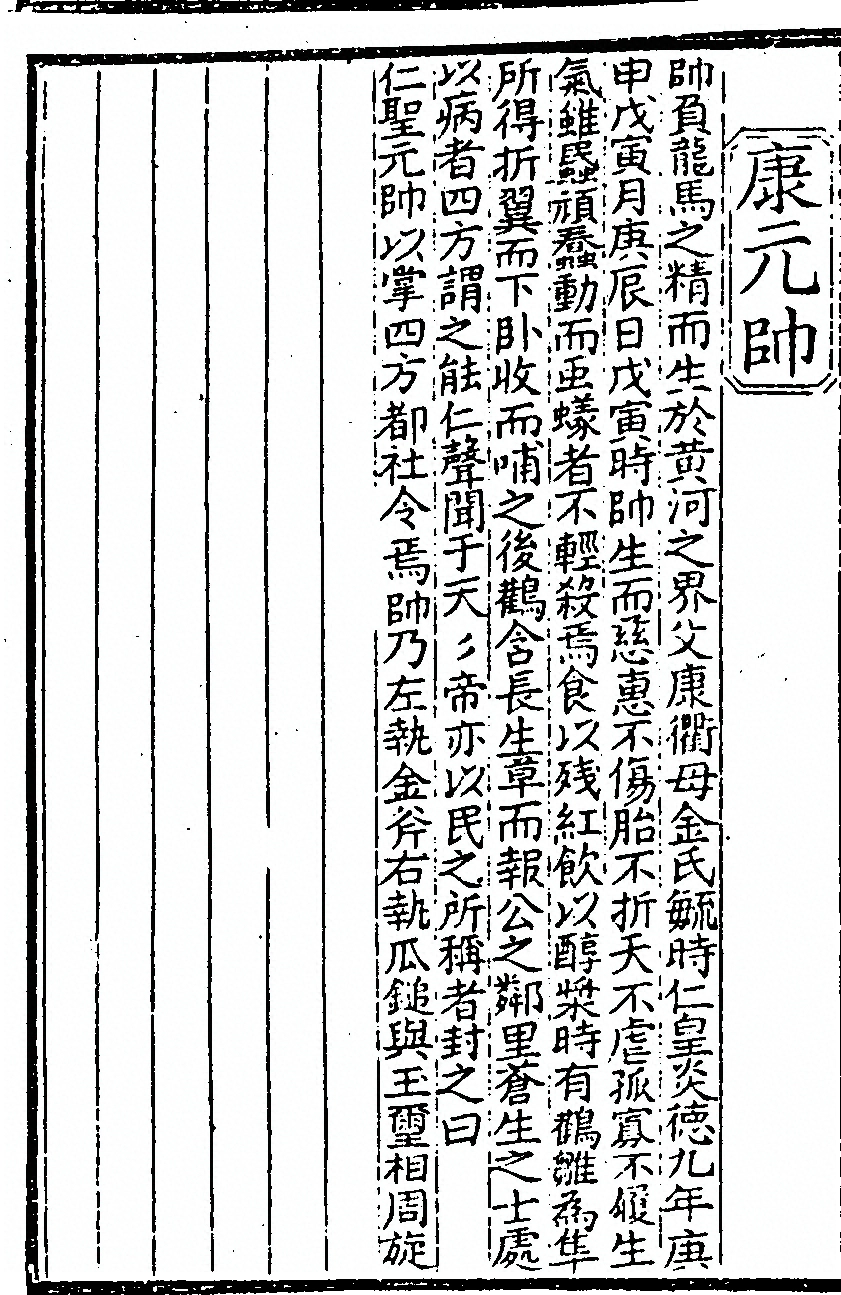 康元帥
帥負龍馬之精而生於黄河之界父康衢母金氏毓時仁皇炎德九年庚
申戊寅月庚辰日戊寅時帥生而慈惠不傷胎不折夭不虐孤寡不履生
氣雖昆蟲頑蠢動而虫蟻者不輕殺焉食以残紅飲以醇漿時有鸛雛為隼
所得折翼而下卧收而哺之後鸛含長生草而報公之鄰里蒼生之士處
以病者四方謂之能仁聲聞于天〻帝亦以民之所稱者封之曰
仁聖元帥以掌四方都社令焉帥乃左執金斧右執瓜鎚與玉璽相周旋